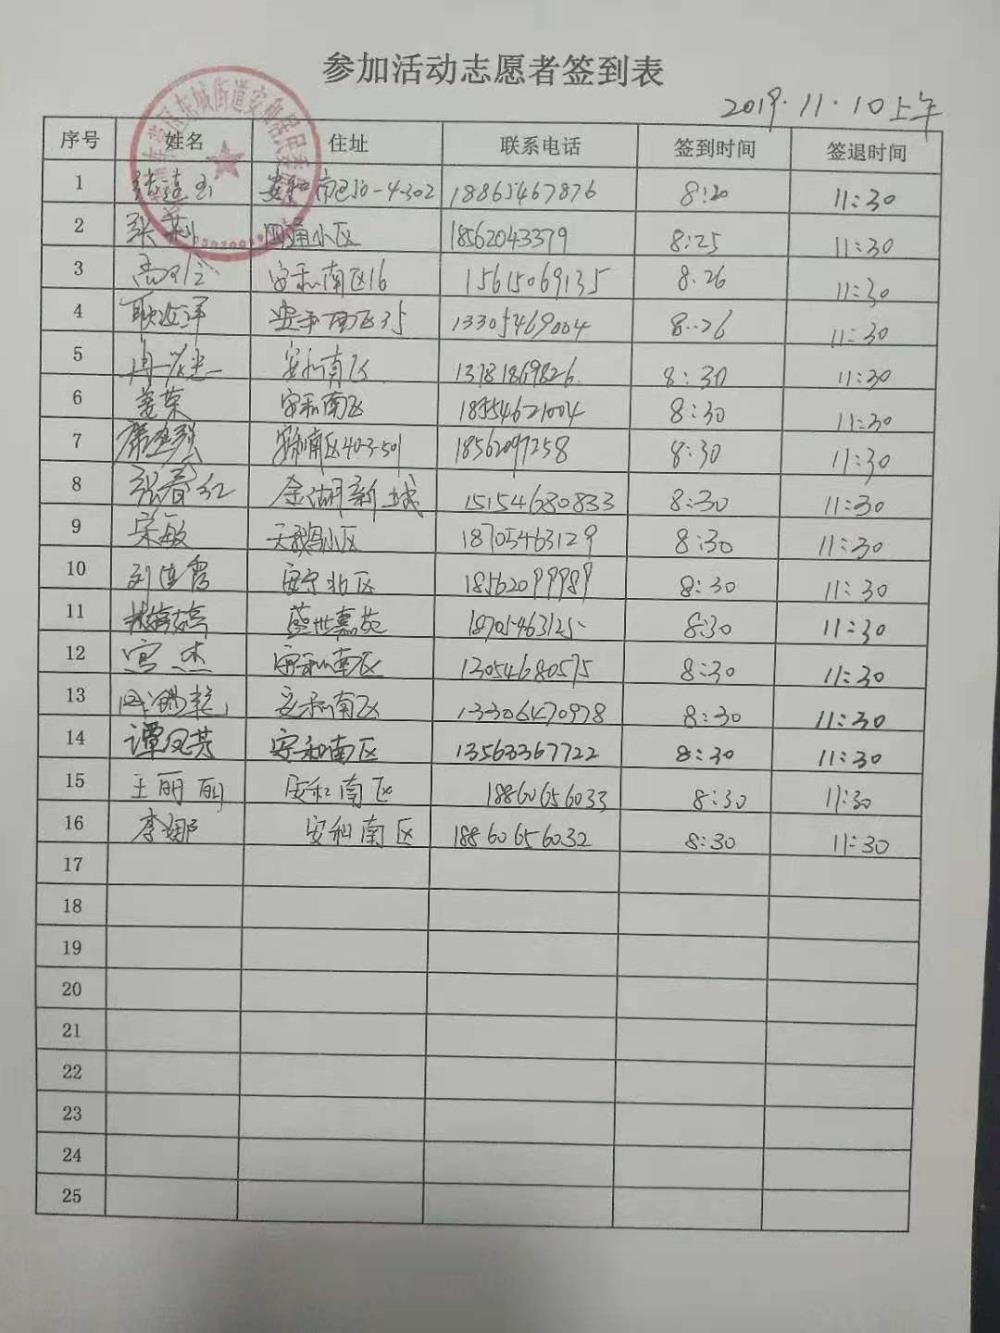 参加活动志愿者签到表
2019.11.10上午
序号 姓名 住址 联系电话 签到时间 签退时间
1 安和南区50-4-302 18865467876 8:20 11:30
2 张莉 小区 18562043379 8:25 11:30
3 安和南区16 15615069135 8:26 11:30
4 安和南区35 13305469004 8:26 11:30
5 安和南区 13181869826 8:30 11:30
6 姜荣 安和南区 18554621004 8:30 11:30
7 安和南区40-3-501 18562097258 8:30 11:30
8 张春红 金湖新城 15154680833 8:30 11:30
9 宋敏 天鹅小区 18705463129 8:30 11:30
10 安宁北区 18562099989 8:30 11:30
11 盛世嘉苑 8:30 11:30
12 宫杰 安和南区 13054680575 8:30 11:30
13 安和南区 13306470978 8:30 11:30
14 谭凤其 安和南区 13563367722 8:30 11:30
15 王丽丽 安和南区 18860656033 8:30 11:30
16 李娜 安和南区 18860656032 8:30 11:30
17
18
19
20
21
22
23
24
25